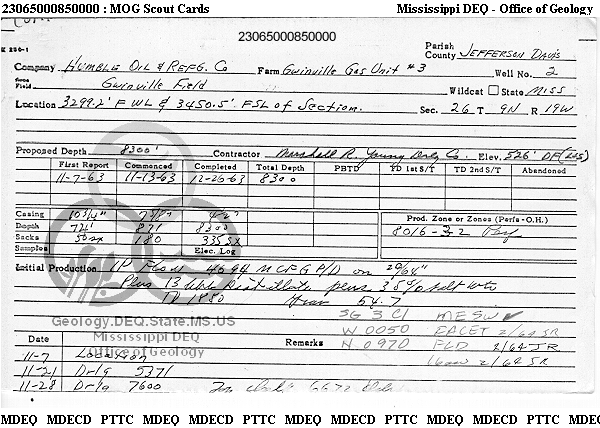 23065000850000 : MOG Scout Cards Mississippi DEQ - Office of Geology
23065000850000
K 250-1
Parish
County JEFFERSON DAVIS
Company HUMBLE OIL & REFG. CO Farm Gwinville Gas Unit #3 Well No. 2
Field Gwinville Field Wildcat State MISS
Location 3299.2' FWL & 3450.5' FSL of Section. Sec. 26 T 9N R 19W
Proposed Depth 8300' Contractor Marshall R. Young Drlg Co. Elev. 526' DF
First Report Commenced Completed Total Depth PBTD TD 1st S/T TD 2nd S/T Abandoned
11-7-63 11-13-63 12-20-63 8300
Casing 10 3/4" 7 5/8"
Prod. Zone or Zones (Perfs-O.H.)
Depth 724' 871 8300
8016-32
Sacks 50sx 180 335sx
Samples Elec. Log
Initial Production IP Flow 4694 MCFGP/D on 20/64"
Plus 13 bbls Distillate plus 35% salt wtr
TP 1880 Grav 54.7
SG 3 C1 MESW
Geology.DEQ.State.MS.US
W 0050 2/64 JR
Mississippi DEQ
Date Remarks N 0970 FLD 2/64 JR
Office of Geology
11-7 Location 2/64 JR
11-21 Drlg 5371
11-28 Drlg 7600
MDEQ MDECD PTTC MDEQ MDECD PTTC MDEQ MDECD PTTC MDEQ MDECD PTTC MDEQ MDE